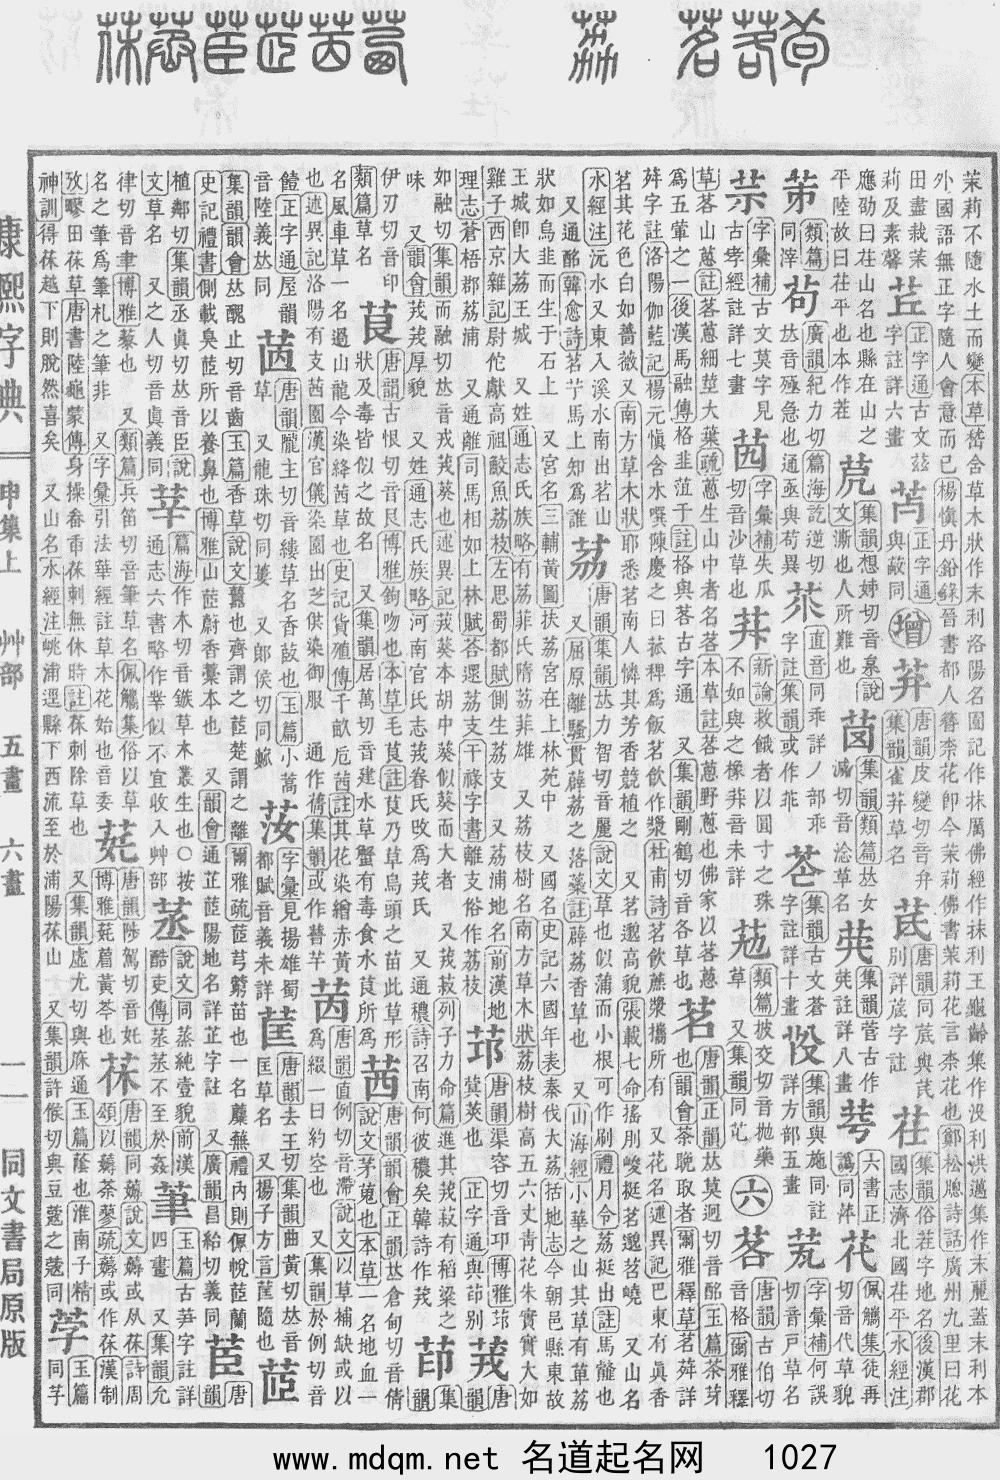 茉莉不隨水土而變本草嵇含草木狀作末利洛陽名園記作抹厲佛經作抹利王龜齡集作没利洪邁集作末麗蓋末利本
外國語無正字隨人會意而已楊愼丹鉛錄晉書都人簪柰花卽今茉莉佛書茉莉花言柰花也鄭松牎詩話廣州九里曰花
田盡栽茉莉及素馨
正字通古文茲字註詳六畫
正字通與蔽同
增
莽 唐韻皮變切音弁集韻雀莽草名
芪 唐韻同茋與芪別詳茋字註
茌 集韻俗茬字地名後漢郡國志濟北國茌平水經注
應劭曰茌山名也縣在山之平陸故曰茌平也本作茬
集韻想姊切音枲說文澌也人所難也
集韻類篇𠀤女減切音淰草名
集韻菅古作䒶註詳八畫
六書正譌同
花 佩觿集徒再切音代草貌
類篇同滓
苟 廣韻紀力切𠀤音殛急也通亟與苟異
篇海訖逆切
直音同乖詳丿部乖字註集韻或作菲
集韻古文蒼字註詳十畫
集韻與施同註詳方部五畫
字彙補何誤切音戸草名
字彙補古文莫字見古孝經註詳七畫
茵 字彙補失瓜切音沙草也
新論救餓者以圓寸之珠不如與之橡茾音未詳
類篇披交切音拋藥草 又集韻同芘
六
茖 唐韻古伯切音格爾雅釋
草茖山蔥註茖蔥細莖大葉疏蔥生山中者名茖本草註茖蔥野蔥也佛家以茖蔥
爲五葷之一後漢馬融傳格韭菹于註格與茖古字通 又集韻剛鶴切音各草也
茗 唐韻正韻𠀤莫迥切音酩玉篇茶芽也韻會茶晚取者爾雅釋草茗荈詳
荈字註洛陽伽藍記楊元愼含水噀陳慶之曰菰稗爲飯茗飮作漿杜甫詩茗飮蔗漿攜所有 又花名述異記巴東有眞香
茗其花色白如薔薇又南方草木狀耶悉茗南人憐其芳香競植之 又茗邈高貌張載七命搖刖峻挺茗邈苕嶢 又山名
水經注沅水又東入溪水南出茗山
又通酩韓愈詩茗艼馬上知爲誰
荔 唐韻集韻𠀤力智切音麗說文草也似蒲而小根可作刷禮月令荔挺出註馬薤也
又屈原離騷貫薜荔之落蘂註薜荔香草也 又山海經小華之山其草有萆荔
狀如烏韭而生于石上 又宮名三輔黃圖扶荔宮在上林苑中 又國名史記六國年表秦伐大荔括地志今朝邑縣東故
王城卽大荔王城 又姓通志氏族略有荔菲氏隋荔菲雄 又荔枝樹名南方草木狀荔枝樹高五六丈靑花朱實實大如
雞子西京雜記尉佗獻高祖鮫魚荔枝左思蜀都賦側生荔支 又荔浦地名前漢地
理志蒼梧郡荔浦 又通離司馬相如上林賦荅遝荔支干祿字書離支俗作荔支
茚 唐韻渠容切音邛博雅茚蓂莢也 正字通與茆別
茙 唐韻
如融切集韻而融切𠀤音戎茙葵也述異記茙葵本胡中葵似葵而大者 又茙菽列子力命篇進其茙菽有稻粱之
味 又韻會茙茙厚貌 又姓通志氏族略河南官氏志茙眷氏改爲茙氏 又通穠詩召南何彼穠矣韓詩作茙
茚 集韻
伊刃切音印類篇草名
茛 唐韻古恨切音艮博雅鉤吻也本草毛茛註茛乃草烏頭之苗此草形狀及毒皆似之故名 又集韻居萬切音建水草蟹有毒食水茛所爲
茜 唐韻韻會正韻𠀤倉甸切音倩說文茅蒐也本草一名地血一
名風車草一名過山龍今染絳茜草也史記貨殖傳千畝卮茜註其花染繒赤黃
也述異記洛陽有支茜園漢官儀染園出芝供染御服 通作蒨集韻或作輤芊
茵 唐韻直例切音滯說文以草補缺或以爲綴一曰約空也 又集韻於例切音
饐正字通屋韻音陸義𠀤同
茵 唐韻隴主切音縷草名香䓤也玉篇小蒿草 又龍珠切同蔞 又郎侯切同
茹 字彙見揚雄蜀都賦音義未詳
茥 唐韻去王切集韻曲黃切𠀤音匡草名 又揚子方言茥隨也
茝 唐韻
集韻韻會𠀤醜止切音齒玉篇香草說文虈也齊謂之茝楚謂之離爾雅疏茝芎藭苗也一名蘼蕪禮內則佩帨茝蘭
史記禮書側載臭茝所以養鼻也博雅山茝蔚香藁本也 又韻會通芷茝陽地名詳芷字註 又廣韻昌紿切義同
茞 唐韻
植鄰切集韻丞眞切𠀤音臣說文草名 又之人切音眞義同
莘 篇海作木切音鏃草木叢生也○按通志六書略作丵似不宜收入艸部
蒸 說文同烝純壹貌前漢酷吏傳蒸蒸不至於姦
筆 玉篇古笋字註詳四畫 又集韻允
律切音聿博雅蔾也 又類篇兵笛切音筆草名佩觿集俗以草
名之筆爲筆札之筆非 又字彙引法華經註草木花始也音委
唐韻陟駕切音奼博雅莸䔰黃芩也
茠 唐韻同薅說文薅或从茠詩周頌以薅荼蓼疏薅或作茠漢制
攷疁田茠草唐書陸龜蒙傳身操畚臿茠刺無休時註茠刺除草也 又集韻虛尤切與庥通玉篇蔭也淮南子精
神訓得茠越下則脫然喜矣 又山名水經注姚浦逕縣下西流至於浦陽茠山 又集韻許候切與豆蔲之蔲同
茡 玉篇同芓
康熙字典 申集上 艸部 五畫 六畫 一一 同文書局原版
www.mdqm.net 名道起名网 1027